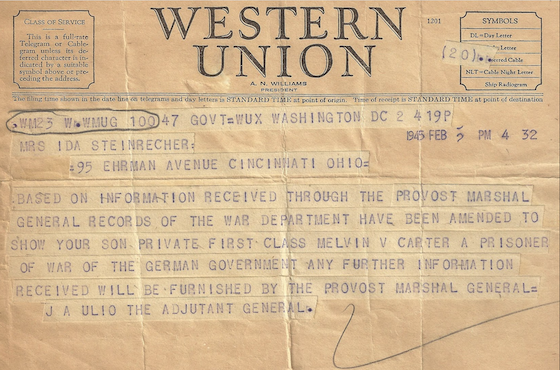 WESTERN
UNION
A. N. WILLIAMS
PRESIDENT
CLASS OF SERVICE
This is a full-rate
Telegram or Cable-
gram unless its de-
ferred character is in-
dicated by a suitable
symbol above or pre-
ceding the address.
1201
(20)
SYMBOLS
DL=Day Letter
Letter
Cable
NLT=Cable Night Letter
Ship Radiogram
The filing time shown in the date line on telegrams and day letters is STANDARD TIME at point of origin. Time of receipt is STANDARD TIME at point of destination
WMUG 100 47 GOVT=WUX WASHINGTON DC 2 419P
MRS IDA STEINRECHER
1945 FEB PM 4 32
=95 EHRMAN AVENUE CINCINNATI OHIO=
BASED ON INFORMATION RECEIVED THROUGH THE PROVOST MARSHAL
GENERAL RECORDS OF THE WAR DEPARTMENT HAVE BEEN AMENDED TO
SHOW YOUR SON PRIVATE FIRST CLASS MELVIN V CARTER A PRISONER
OF WAR OF THE GERMAN GOVERNMENT ANY FURTHER INFORMATION
RECEIVED WILL BE FURNISHED BY THE PROVOST MARSHAL GENERAL=
J A ULIO THE ADJUTANT GENERAL.